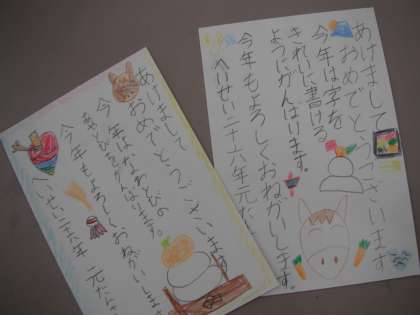 あけまして
おめでとうございます
今年は字を
きれいに書ける
ようにがんばります。
今年もよろしくおねがいします。
へいせい二十六年元だ
あけまして
おめでとうございます
今年はなわとびの
あやとびをがんばります。
今年もよろしくおねがいします
へいせい二十六年 元だん